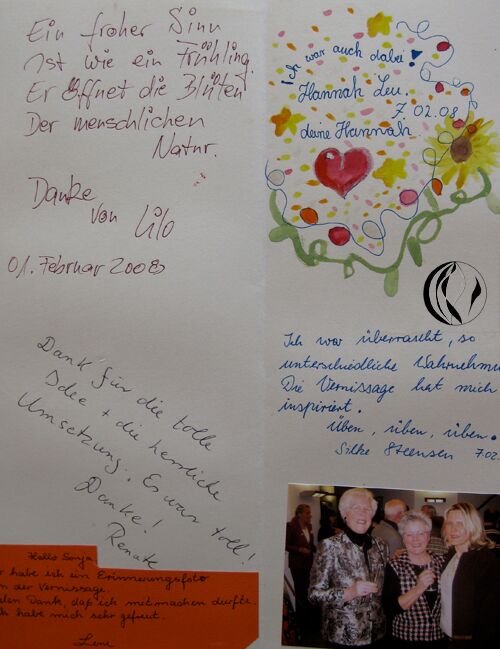 Ein froher Sinn
ist wie ein Frühling.
Er öffnet die Blüten
Der menschlichen
Natur.
Danke
von Lilo
01. Februar 2008
Dank für die tolle
Idee + die herrliche
Umsetzung. Es war toll!
Danke!
Renate
Hallo Sonja
habe ich ein Erinnerungsfoto
der Vernissage.
Dank, daß ich mitmachen durfte.
habe mich sehr gefreut.
Lene
Ich war auch dabei!
Hannah Leu.
7.02.08
deine Hannah
Ich war überrascht, so
unterschiedliche
Die Vernissage hat mich
inspiriert.
Üben, üben, üben.
Silke Steensen 7.02.